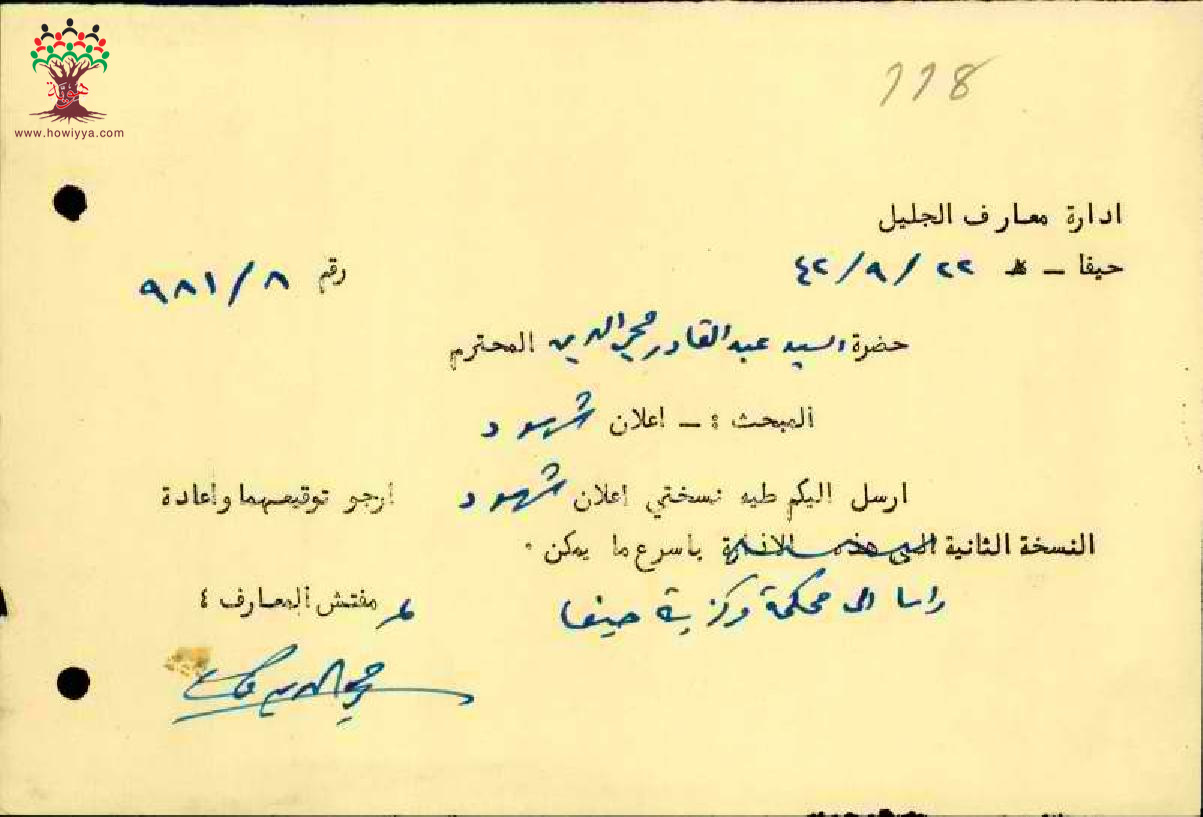 هوية
www.howiyya.com
118
ادارة معارف الجليل
حيفا – ٢٢/٩/٤٢
رقم ٩٨١/٨
حضرة السيد عبد القادر محي الدين المحترم
المبحث :– اعلان شهود
ارسل اليكم طيه نسختي اعلان شهود ارجو توقيعهما واعادة
النسخة الثانية الى هذه الادارة باسرع ما يمكن .
راسا الى محكمة مركزية حيفا
مفتش المعارف ٤
محي الدين